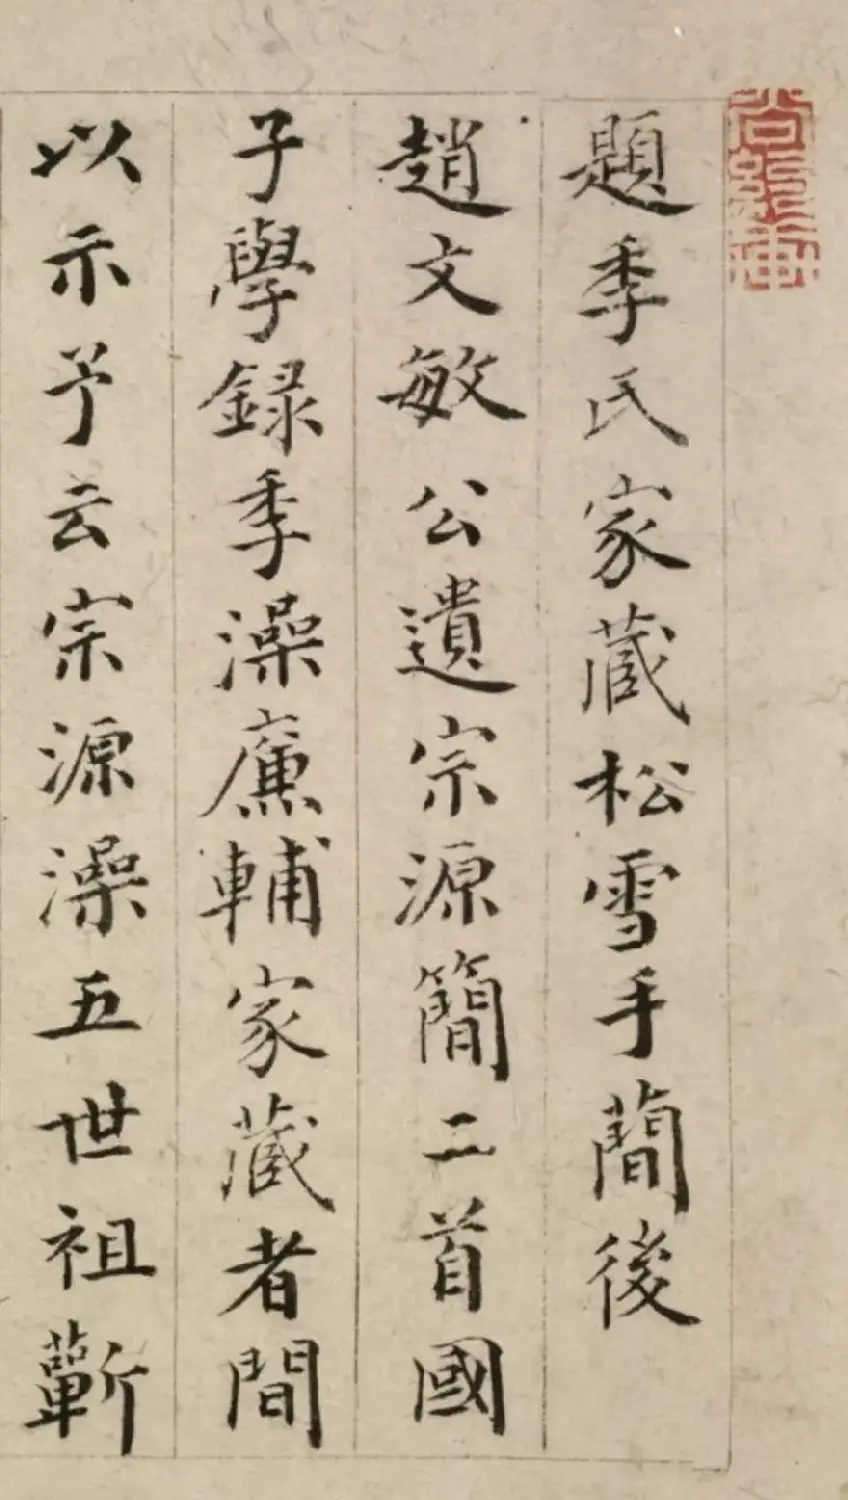 題季氏家蔵松雪手蕳後
趙文敏公遺宗源簡二首國
子學録季澡廉輔家蔵者間
以示予云宗源澡五世祖蘄